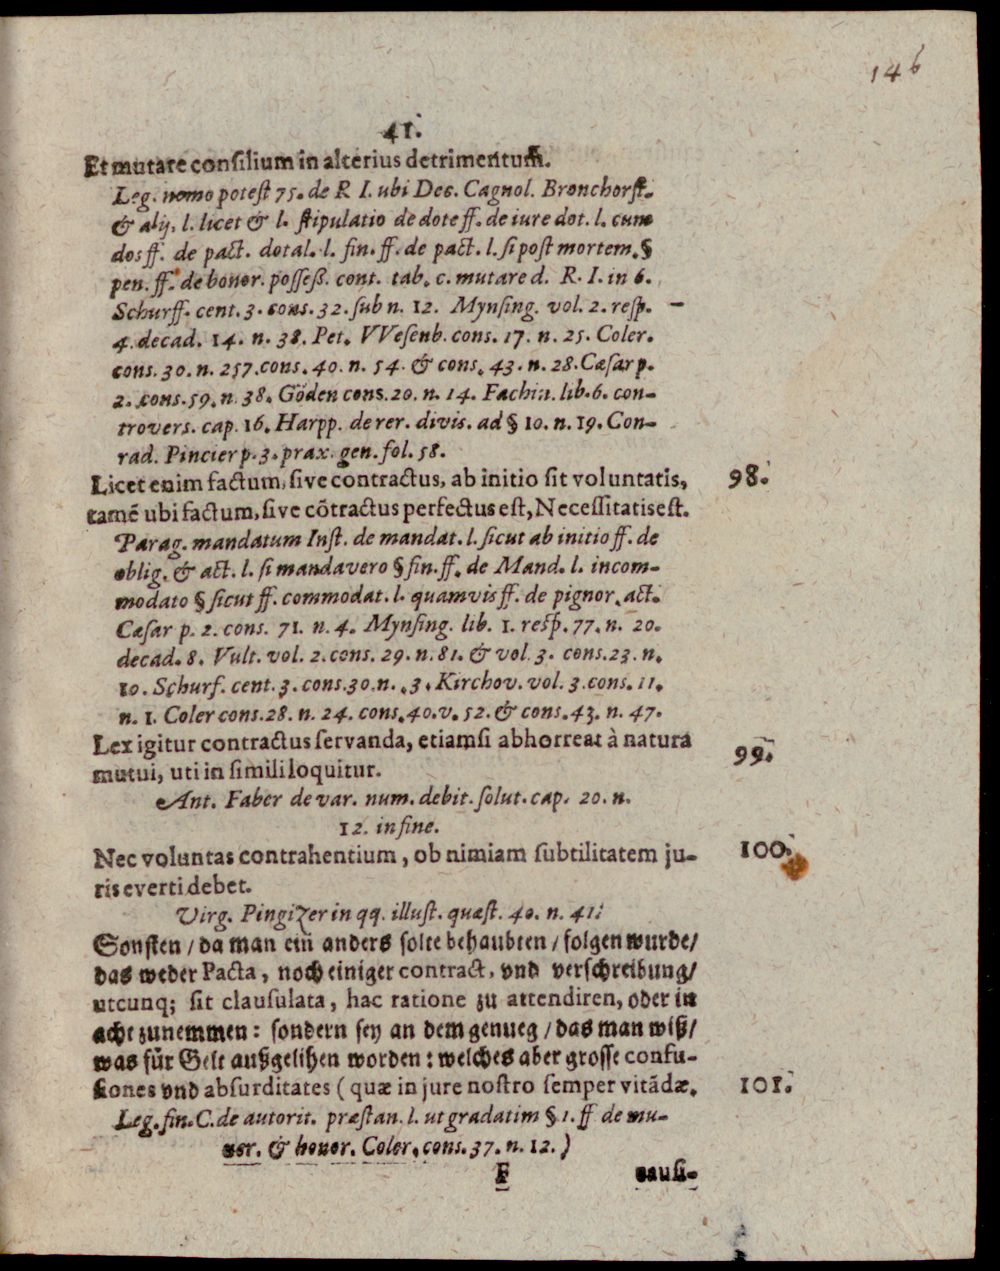 146
41.
Et mutare consilium in alterius detrimentum.
Leg. nemo potest 75. de R I. ubi Dec. Cagnol. Bronchorst.
& alij, l. licet & l. stipulatio de dote ff. de iure dot. l. cum
dos ff. de pact. dotal. l. fin. ff. de pact. l. si post mortem. §
pen. ff. de bonor. posseß. cont. tab. c. mutare d. R. I. in 6.
Schurff. cent. 3. cons. 32. sub n. 12. Mynsing. vol. 2. resp.
4. decad. 14. n. 38. Pet. VVesenb. cons. 17. n. 25. Coler.
cons. 30. n. 257. cons. 40. n. 54. & cons. 43. n. 28. Cæsar p.
2. cons. 59. n. 38. Göden cons. 20. n. 14. Fachin. lib. 6. con-
trovers. cap. 16. Harpp. de rer. divis. ad § 10. n. 19. Con-
rad. Pincier p. 3. prax. gen. fol. 58.
Licet enim factum, sive contractus, ab initio sit voluntatis, 98.
tamẽ ubi factum, sive cõtractus perfectus est, Necessitatis est.
Parag. mandatum Inst. de mandat. l. sicut ab initio ff. de
oblig. & act. l. si mandavero § fin. ff. de Mand. l. incom-
modato § sicut ff. commodat. l. quamvis ff. de pignor. act.
Cæsar p. 2. cons. 71. n. 4. Mynsing. lib. 1. resp. 77. n. 20.
decad. 8. Vult. vol. 2. cons. 29. n. 81. & vol. 3. cons. 23. n.
10. Schurf. cent. 3. cons. 30. n. 3. Kirchov. vol. 3. cons. 11.
n. 1. Coler cons. 28. n. 24. cons. 40. v. 52. & cons. 43. n. 47.
Lex igitur contractus servanda, etiamsi abhorreat à natura 99.
mutui, uti in simili loquitur.
Ant. Faber de var. num. debit. solut. cap. 20. n.
12. in fine.
Nec voluntas contrahentium, ob nimiam subtilitatem ju- 100.
ris everti debet.
Virg. Pingizer in qq. illust. quæst. 40. n. 41.
Sonsten / da man ein anders solte behaubten / folgen wurde /
das weder Pacta, noch einiger contract, vnd verschreibung /
utcunq; sit clausulata, hac ratione zu attendiren, oder in
acht zunemmen: sondern sey an dem genueg / das man wiß /
was für Gelt außgelihen worden: welches aber grosse confu-
siones vnd absurditates (quæ in jure nostro semper vitãdæ. 101.
Leg. fin. C. de autorit. præstan. l. ut gradatim § 1. ff de mu-
ner. & honor. Coler. cons. 37. n. 12.)
F causi-